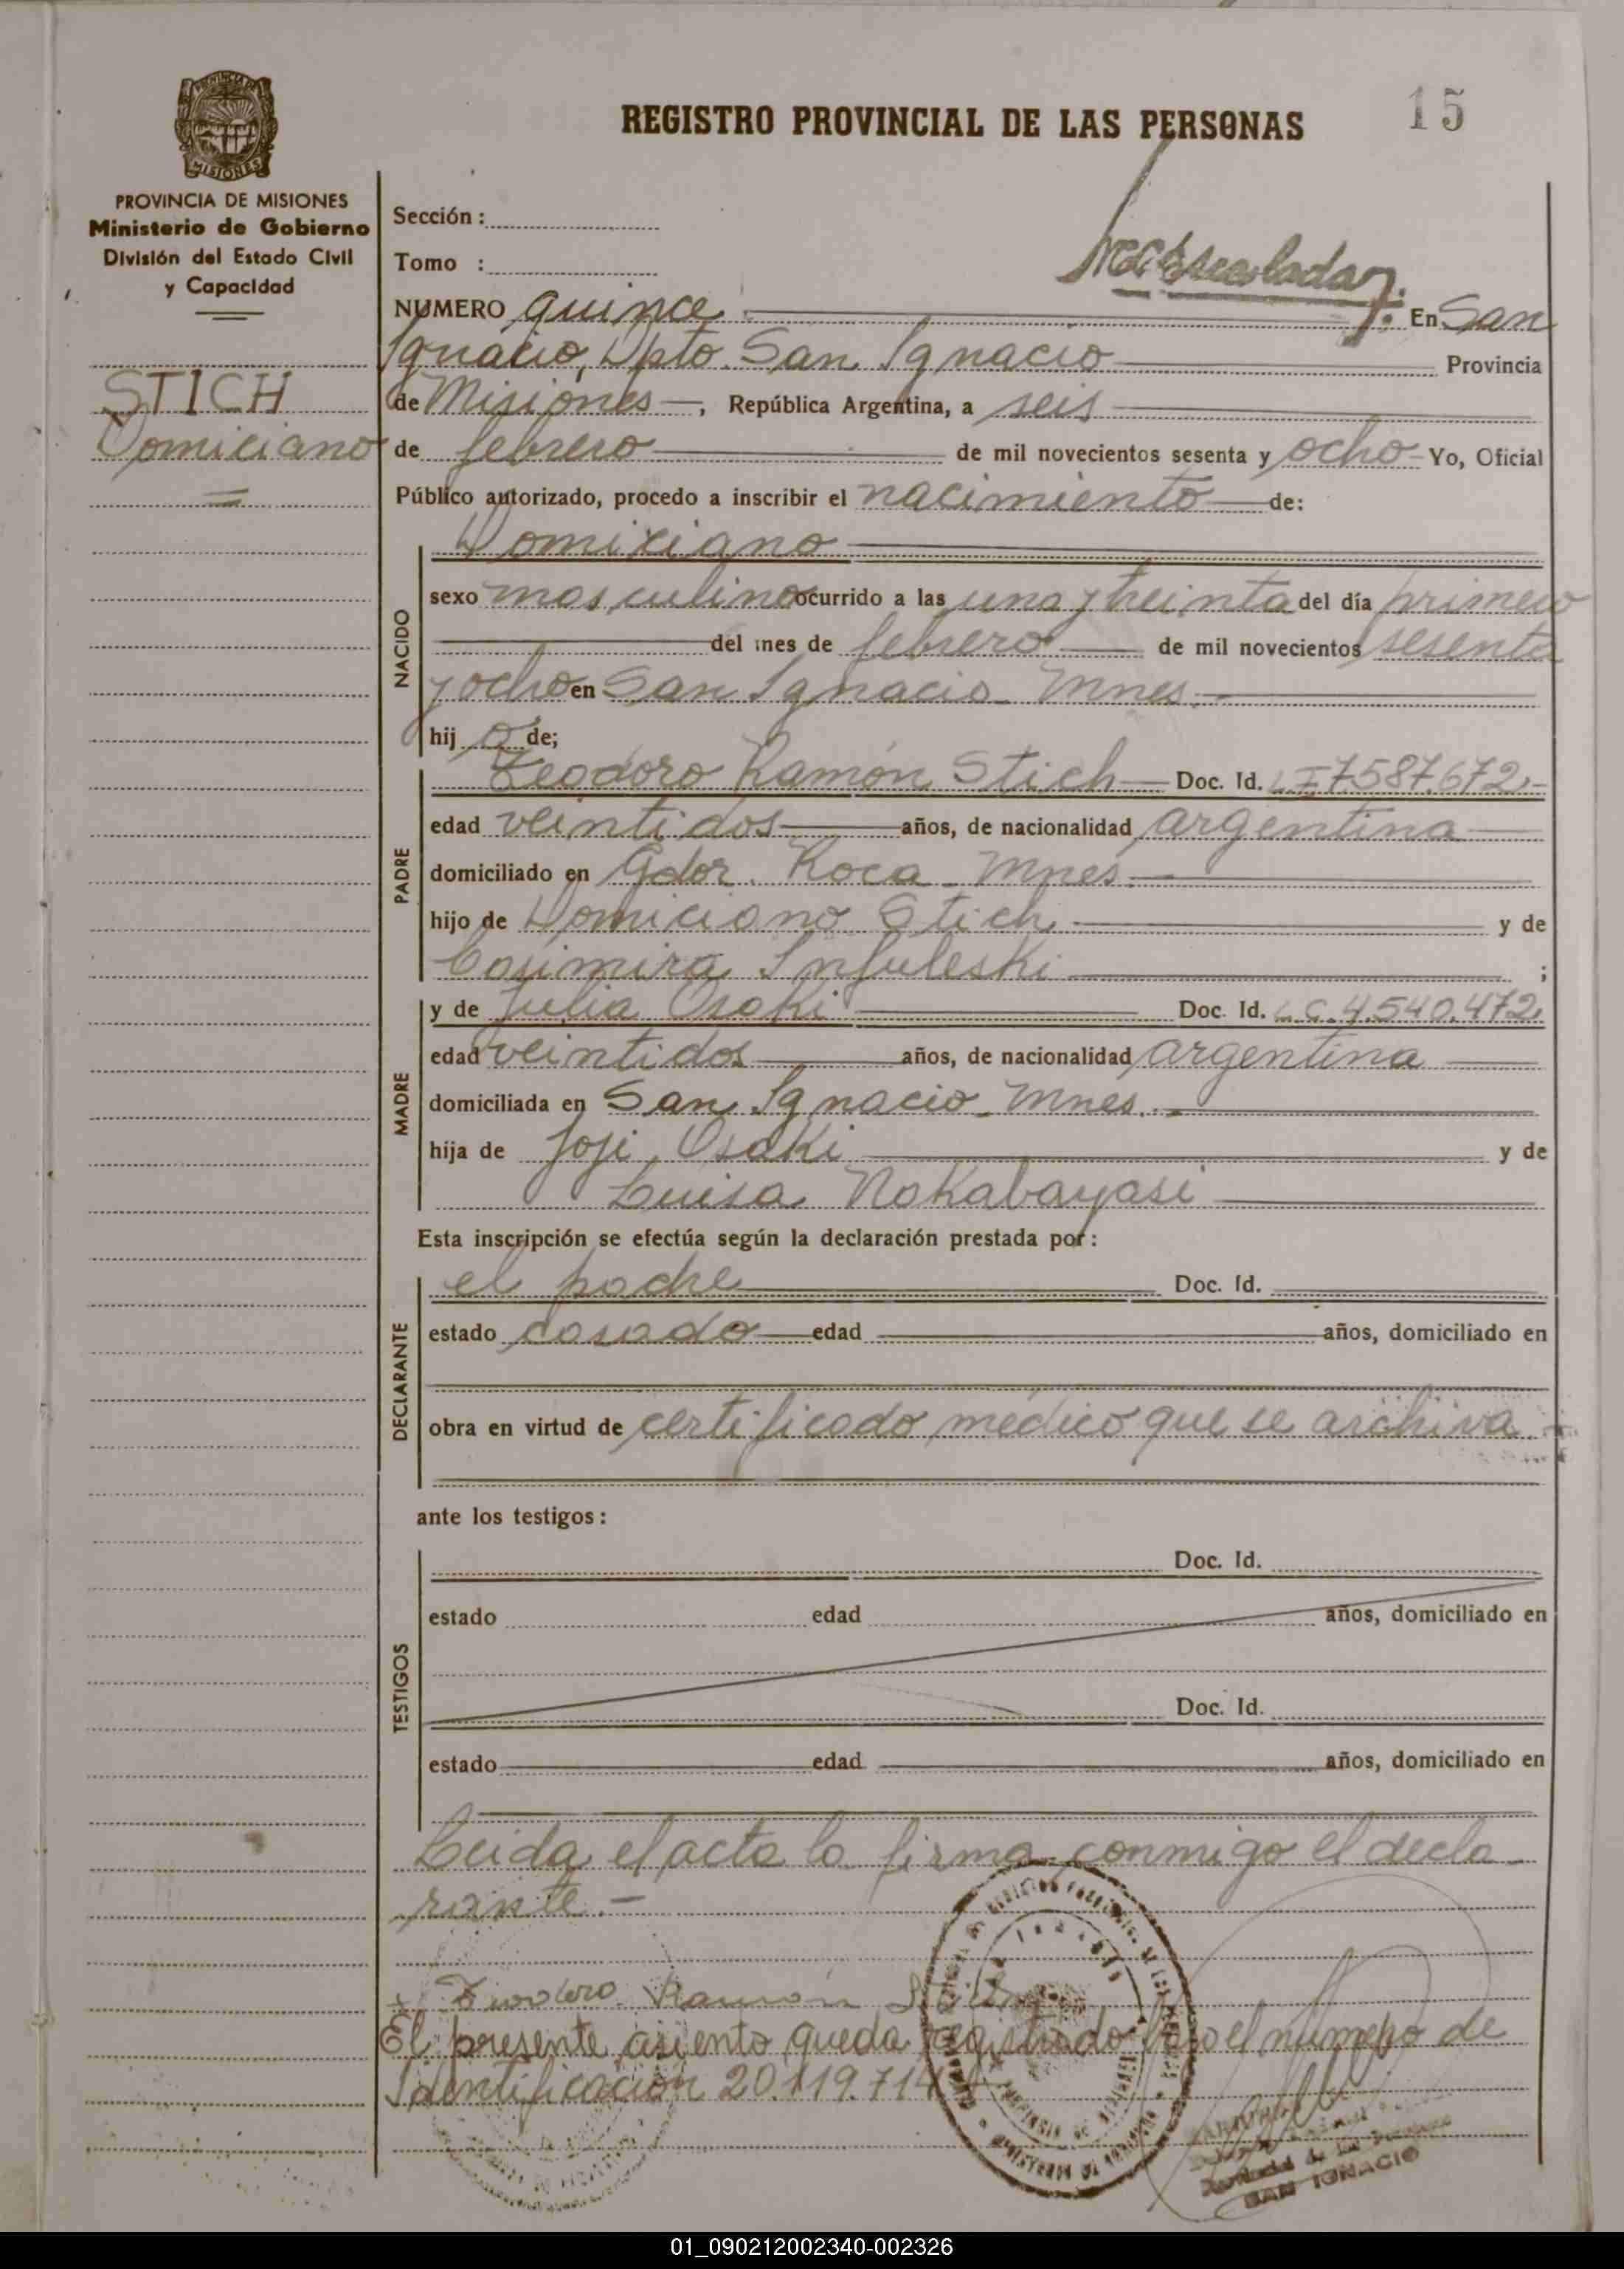 REGISTRO PROVINCIAL DE LAS PERSONAS
15
MISIONES
PROVINCIA DE MISIONES
Ministerio de Gobierno
División del Estado Civil
y Capacidad
STICH
Domiciano
Sección :
Tomo :
NUMERO quince En San
Ignacio, Dpto. San Ignacio Provincia
de Misiones —, República Argentina, a seis
de febrero de mil novecientos sesenta y ocho - Yo, Oficial
Público autorizado, procedo a inscribir el nacimiento de:
Domiciano
NACIDO
sexo masculino ocurrido a las una y treinta del día primero
del mes de febrero de mil novecientos sesenta
y ocho en San Ignacio - Mnes.
hij o de;
PADRE
Teodoro Ramón Stich Doc. Id. 7587.672 -
edad veintidos años, de nacionalidad argentina
domiciliado en Gdor. Roca - Mnes.
hijo de Domiciano Stich y de
Casimira ;
MADRE
y de Julia Osaki Doc. Id. L.C. 4.540.472
edad veintidos años, de nacionalidad argentina
domiciliada en San Ignacio - Mnes. -
hija de Joji Osaki y de
Luisa Nakabayasi
Esta inscripción se efectúa según la declaración prestada por :
DECLARANTE
el padre Doc. Id.
estado casado edad años, domiciliado en
obra en virtud de certificado médico que se archiva.
ante los testigos :
TESTIGOS
Doc. Id.
estado edad años, domiciliado en
Doc. Id.
estado edad años, domiciliado en
Leida el acta la firma conmigo el decla-
rante. -
Teodoro Ramón Stich
El presente asiento queda registrado bajo el número de
Identificación 20.119.714
SAN IGNACIO
01_090212002340-002326